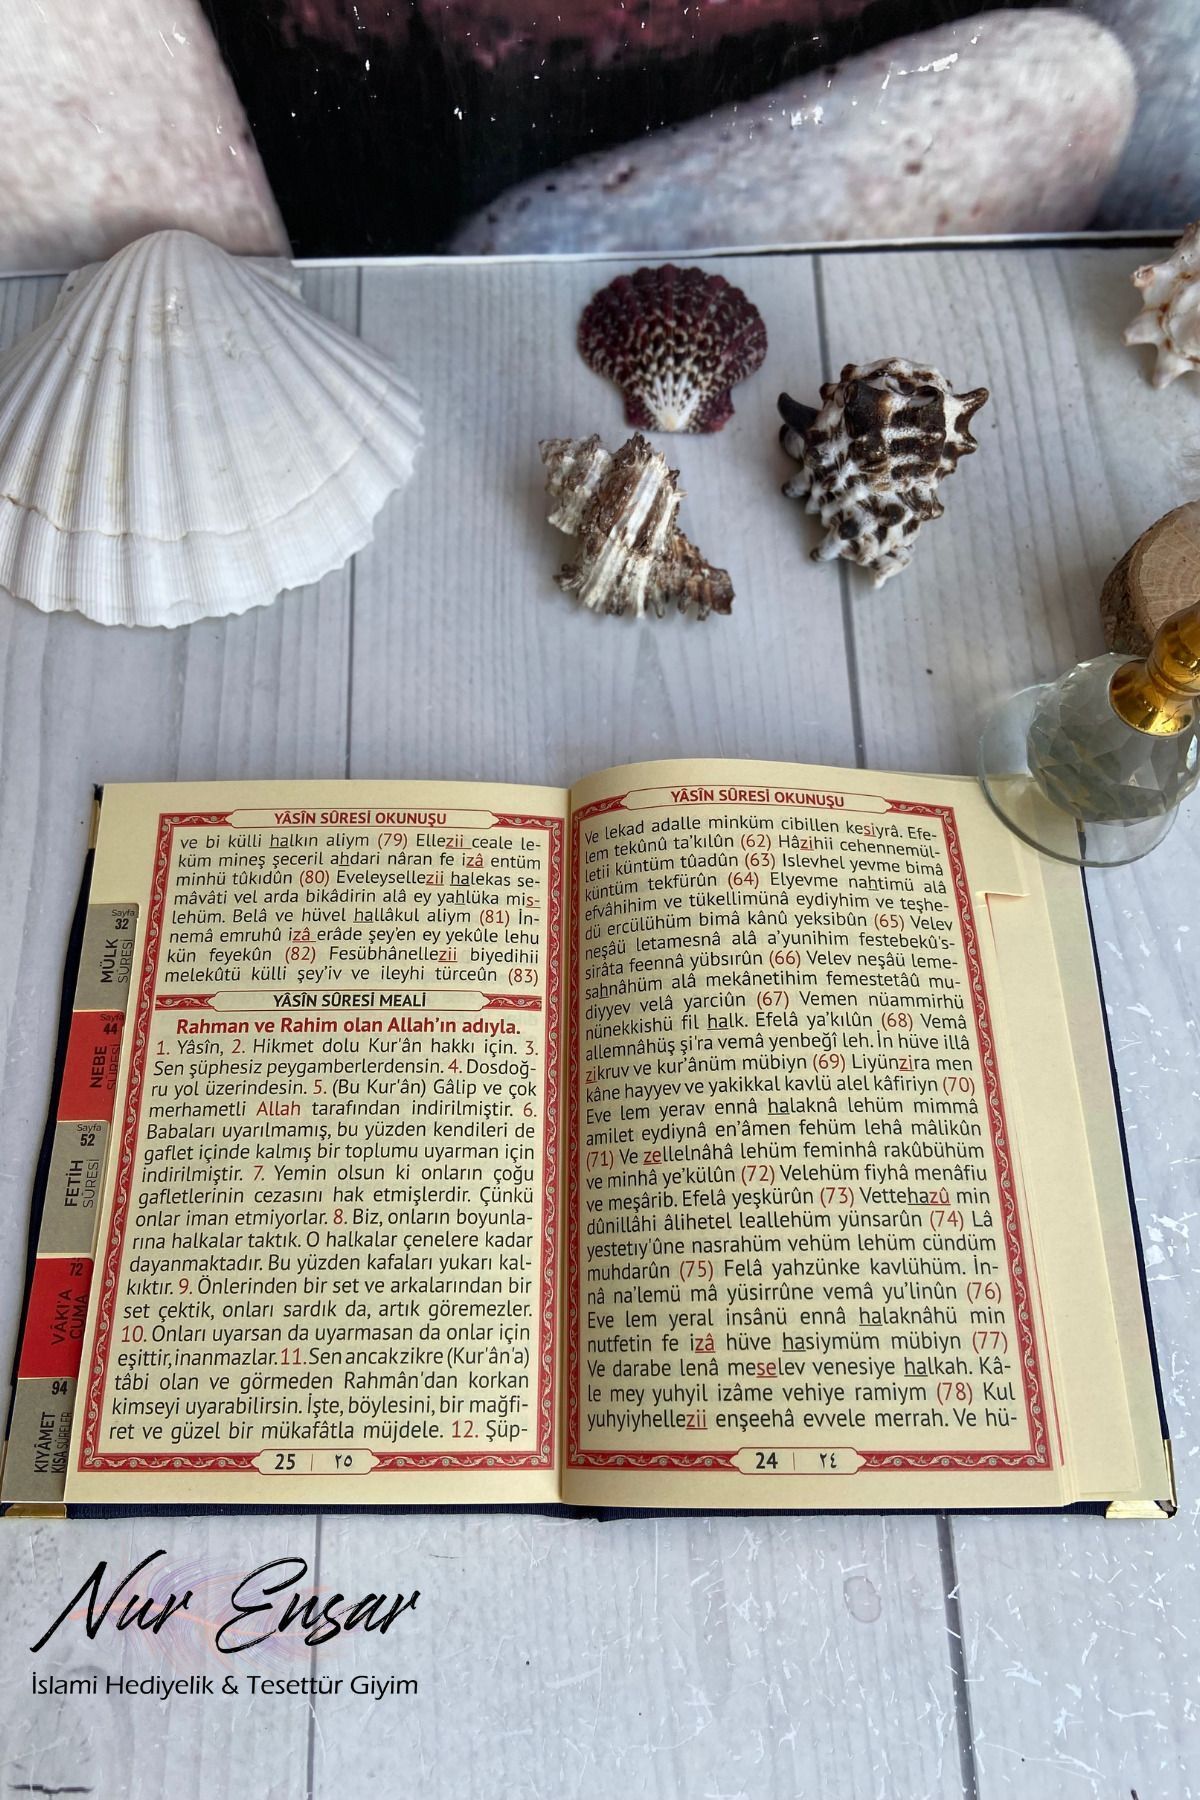 YÂSÎN SÛRESİ OKUNUŞU
Ve lekad adalle minküm cibillen kesiyrâ. Efe-
lem tekûnû ta'kılûn (62) Hâzihii cehennemül-
letii küntüm tûadûn (63) Islevhel yevme bimâ
küntüm tekfürûn (64) Elyevme nahtimü alâ
efvâhihim ve tükellimünâ eydiyhim ve teşhe-
dü ercülühüm bimâ kânû yeksibûn (65) Velev
neşâü letamesnâ alâ a'yunihim festebekû's-
sirâta feennâ yübsırûn (66) Velev neşâü leme-
sahnâhüm alâ mekânetihim femestetâû mu-
diyyev velâ yarciûn (67) Vemen nüammirhü
nünekkishü fil halk. Efelâ ya'kılûn (68) Vemâ
allemnâhüş şi'ra vemâ yenbeğî leh. İn hüve illâ
zikruv ve kur'ânüm mübiyn (69) Liyünzira men
kâne hayyev ve yakikkal kavlü alel kâfiriyn (70)
Eve lem yerav ennâ halaknâ lehüm mimmâ
amilet eydiynâ en'âmen fehüm lehâ mâlikûn
(71) Ve zellelnâhâ lehüm feminhâ rakûbühüm
ve minhâ ye'külûn (72) Velehüm fiyhâ menâfiu
ve meşârib. Efelâ yeşkürûn (73) Vettehazû min
dûnillâhi âlihetel leallehüm yünsarûn (74) Lâ
yestetıy'ûne nasrahüm vehüm lehüm cündüm
muhdarûn (75) Felâ yahzünke kavlühüm. İn-
nâ na'lemü mâ yüsirrûne vemâ yu'linûn (76)
Eve lem yeral insânü ennâ halaknâhü min
nutfetin fe izâ hüve hasiymüm mübiyn (77)
Ve darabe lenâ meselev venesiye halkah. Kâ-
le mey yuhyil izâme vehiye ramiym (78) Kul
yuhyiyhellezii enşeehâ evvele merrah. Ve hü-
24 | ٢٤
YÂSÎN SÛRESİ OKUNUŞU
ve bi külli halkın aliym (79) Ellezii ceale le-
küm mineş şeceril ahdari nâran fe izâ entüm
minhü tûkıdûn (80) Eveleysellezii halekas se-
mâvâti vel arda bikâdirin alâ ey yahlüka mis-
lehüm. Belâ ve hüvel hallâkul aliym (81) İn-
nemâ emruhû izâ erâde şey'en ey yekûle lehu
kün feyekûn (82) Fesübhânellezii biyedihii
melekûtü külli şey'iv ve ileyhi türceûn (83)
YÂSÎN SÛRESİ MEALİ
Rahman ve Rahim olan Allah'ın adıyla.
1. Yâsîn, 2. Hikmet dolu Kur'ân hakkı için. 3.
Sen şüphesiz peygamberlerdensin. 4. Dosdoğ-
ru yol üzerindesin. 5. (Bu Kur'ân) Gâlip ve çok
merhametli Allah tarafından indirilmiştir. 6.
Babaları uyarılmamış, bu yüzden kendileri de
gaflet içinde kalmış bir toplumu uyarman için
indirilmiştir. 7. Yemin olsun ki onların çoğu
gafletlerinin cezasını hak etmişlerdir. Çünkü
onlar iman etmiyorlar. 8. Biz, onların boyunla-
rına halkalar taktık. O halkalar çenelere kadar
dayanmaktadır. Bu yüzden kafaları yukarı kal-
kıktır. 9. Önlerinden bir set ve arkalarından bir
set çektik, onları sardık da, artık göremezler.
10. Onları uyarsan da uyarmasan da onlar için
eşittir, inanmazlar. 11. Sen ancak zikre (Kur'ân'a)
tâbi olan ve görmeden Rahmân'dan korkan
kimseyi uyarabilirsin. İşte, böylesini, bir mağfi-
ret ve güzel bir mükafâtla müjdele. 12. Şüp-
25 | ٢٥
Sayfa
32
MÜLK
SÛRESİ
Sayfa
44
NEBE
SÛRESİ
Sayfa
52
FETİH
SÛRESİ
72
VÂKI'A
CUMA
94
KIYÂMET
KISA SÛRELER
Nur Ensar
İslami Hediyelik & Tesettür Giyim